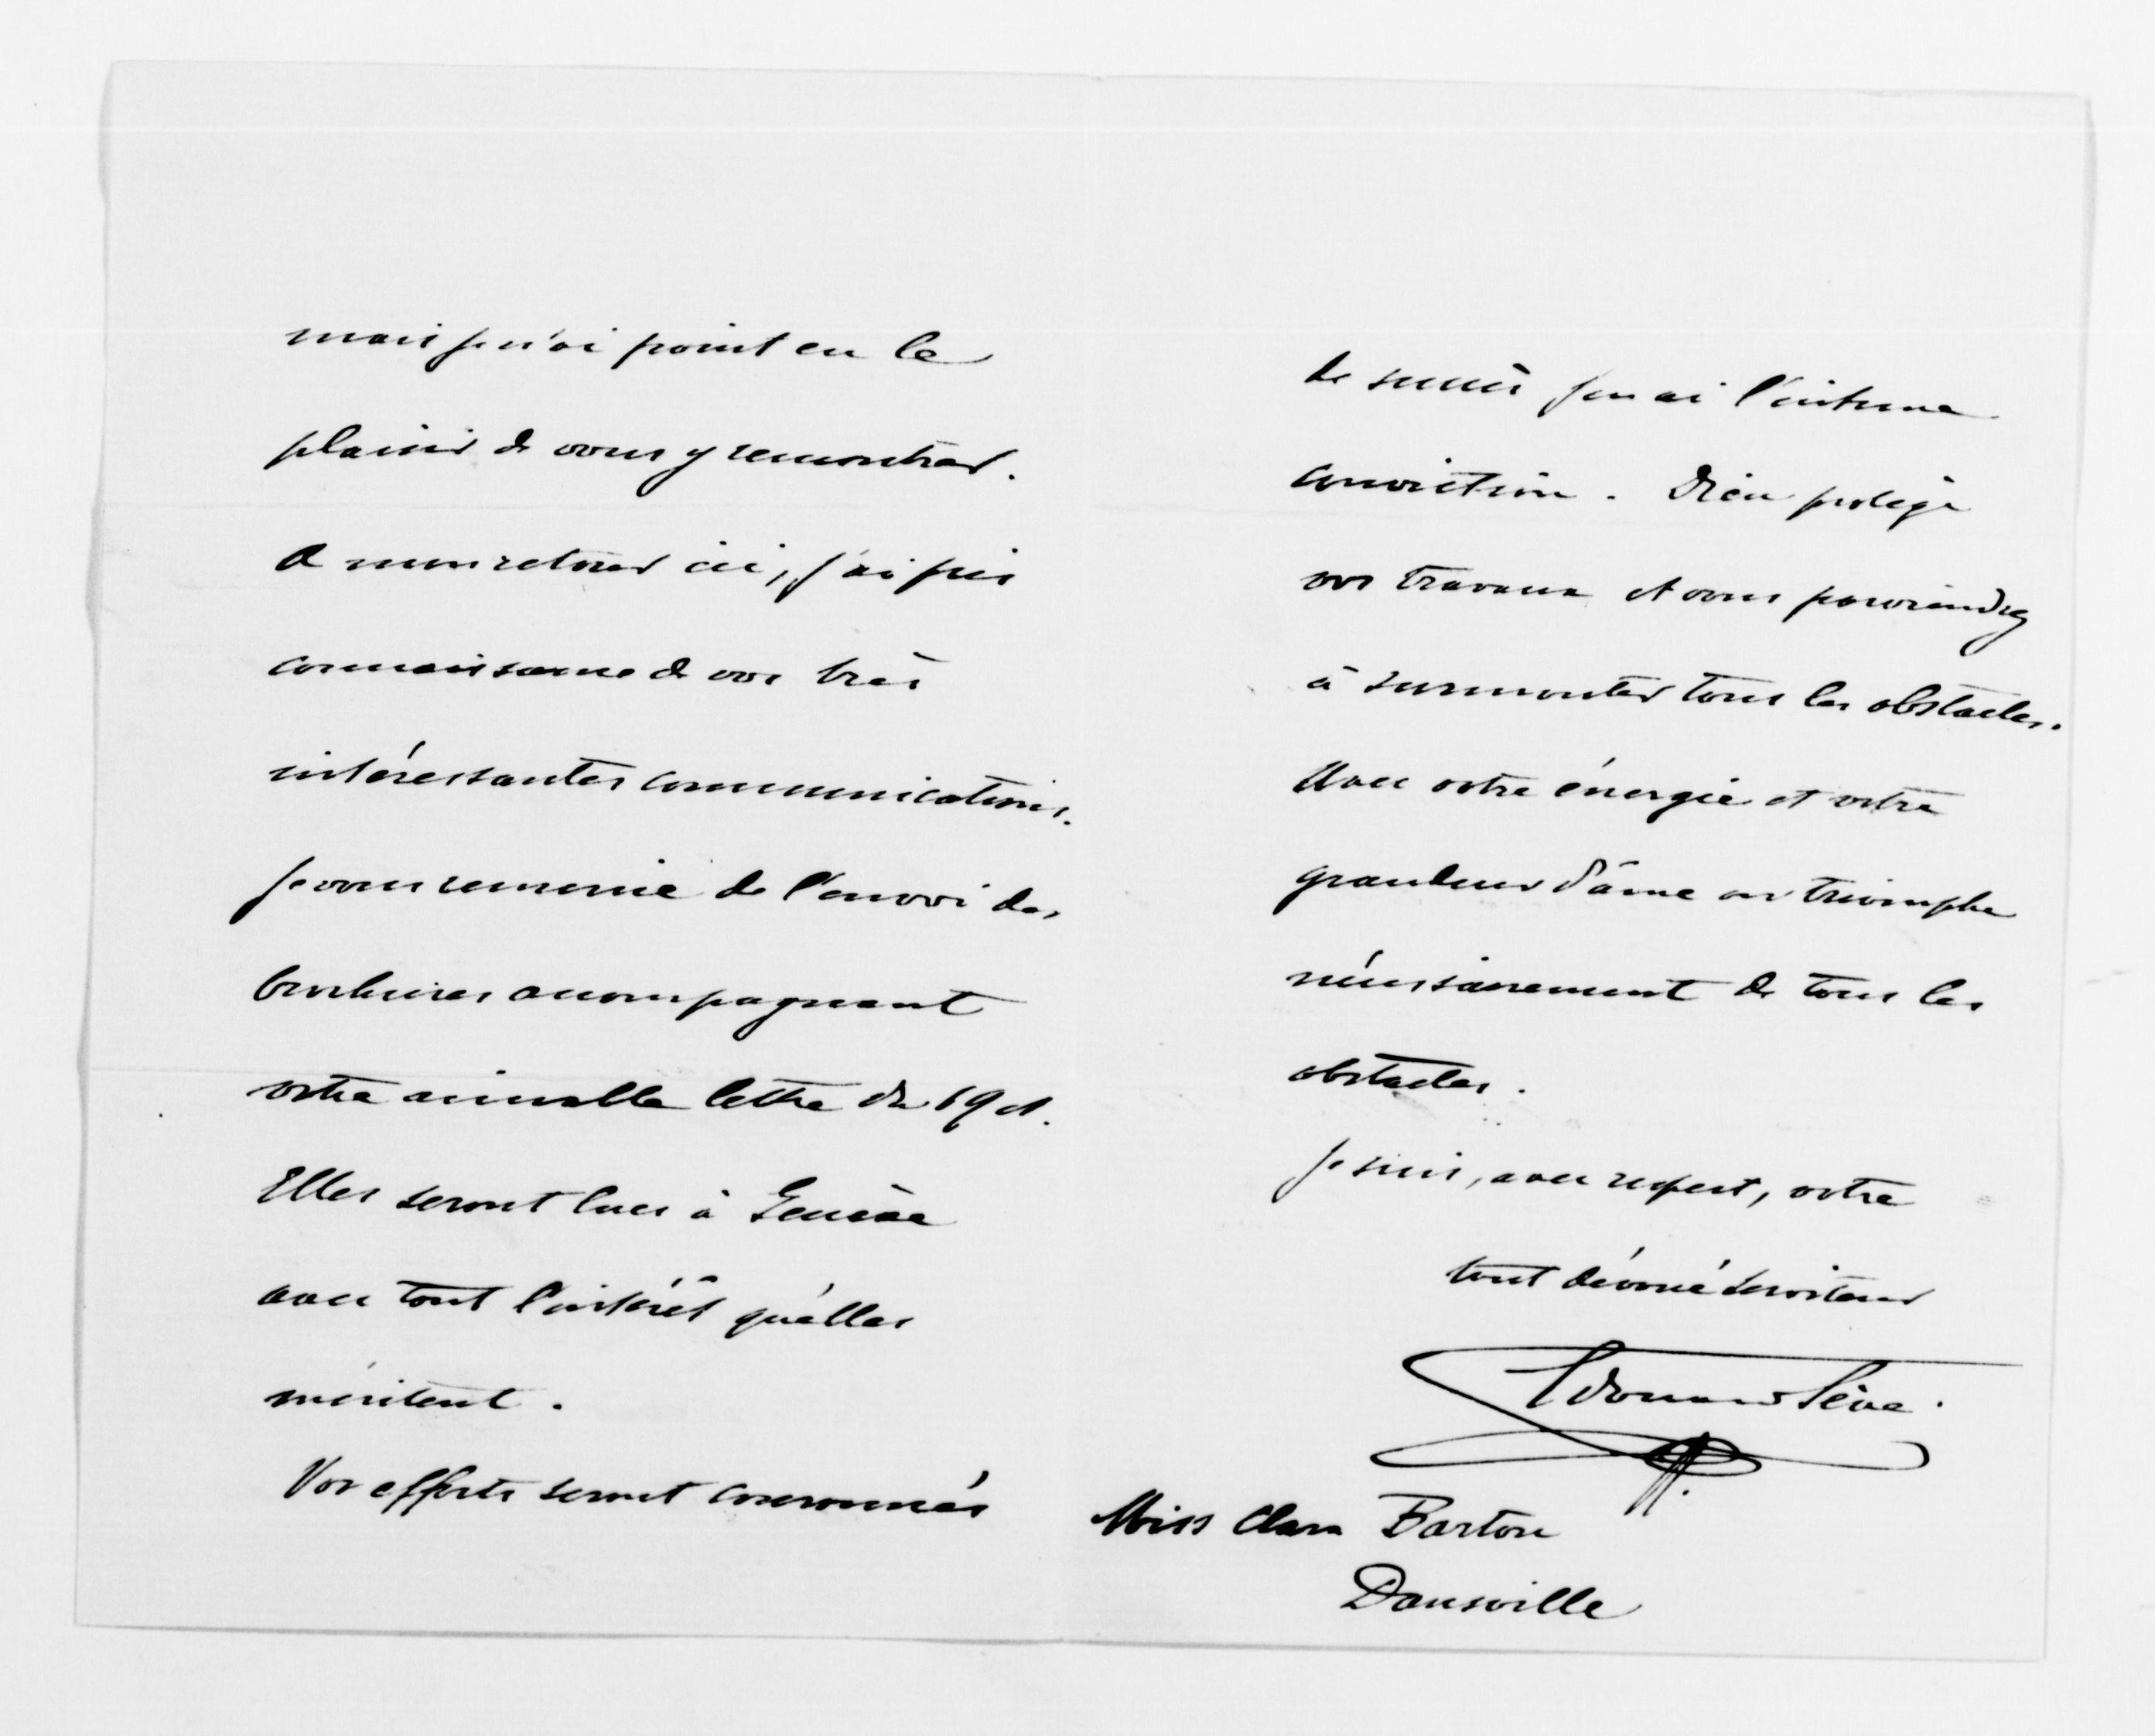 mais je n'ai point eu le
plaisir de vous y rencontrer.
A mon retour ici, j'ai pris
connaissance de vos très
intéressantes communications.
Je vous remercie de l'envoi des
brochures accompagnant
votre aimable lettre du 19 ct.
Elles seront lues à Genève
avec tout l'intérêt qu'elles
méritent.
Vos efforts seront couronnés
de succès j'en ai l'intime
conviction. Dieu protège
vos travaux et vous parviendrez
à surmonter tous les obstacles.
Avec votre énergie et votre
grandeur d'âme on triomphe
nécessairement de tous les
obstacles.
Je suis, avec respect, votre
tout dévoué serviteur
Edouard Sève.
Miss Clara Barton
Dansville